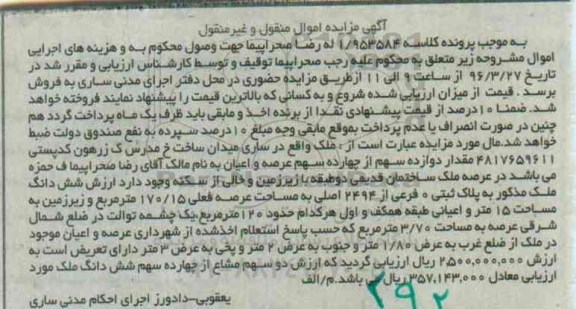 آگهی مزایده اموال منقول و غیرمنقول
به موجب پرونده کلاسه ۱/۹۵۳۵۸۴ له رضا صحراپیما جهت وصول محکوم به و هزینه های اجرایی
اموال مشروحه زیر متعلق به محکوم علیه رجب صحراپیما توقیف و توسط کارشناس ارزیابی و مقرر شد در
تاریخ ۹۶/۳/۲۷ از ساعت ۹ الی ۱۱ ازطریق مزایده حضوری در محل دفتر اجرای مدنی ساری به فروش
برسد . قیمت از میزان ارزیابی شده شروع و به کسانی که بالاترین قیمت را پیشنهاد نمایند فروخته خواهد
شد. ضمنا ۱۰درصد از قیمت پیشنهادی نقدا از برنده اخذ و مابقی باید ظرف یک ماه پرداخت گردد هم
چنین در صورت انصراف یا عدم پرداخت بموقع مابقی وجه مبلغ ۱۰درصد سپرده به نفع صندوق دولت ضبط
خواهد شد.مال مورد مزایده عبارت است از: ملک واقع در ساری میدان ساخ خ مدرس ک زرهون کدپستی
۴۸۱۷۶۵۹۶۱۱ مقدار دوازده سهم از چهارده سهم عرصه و اعیان به نام مالک آقای رضا صحراپیما ف حمزه
می باشد در عرصه ملک ساختمان قدیمی دوطبقه با زیرزمین و خالی از سکنه وجود دارد ارزش شش دانگ
ملک مذکور به پلاک ثبتی ۰ فرعی از ۲۴۹۴ اصلی به مساحت عرصه فعلی ۱۷۰/۱۵ مترمربع و زیرزمین به
مساحت ۱۵ متر و اعیانی طبقه همکف و اول هرکدام حدود ۱۲۰مترمربع،یک چشمه توالت در ضلع شمال
شرقی عرصه به مساحت ۳/۷۰ مترمربع که حسب پاسخ استعلام اخذشده از شهرداری عرصه و اعیان موجود
در ملک از ضلع غرب به عرض ۱/۸۰ متر و جنوب به عرض ۲ متر و پخی به عرض ۳ متر دارای تعریض است به
ارزش ۲۵۰۰،۰۰۰،۰۰۰ ریال ارزیابی گردید که ارزش دو سهم مشاع از چهارده سهم شش دانگ ملک مورد
ارزیابی معادل ۳۵۷،۱۴۳،۰۰۰ ریال می باشد.م/الف
یعقوبی-دادورز اجرای احکام مدنی ساری
۲۹۲